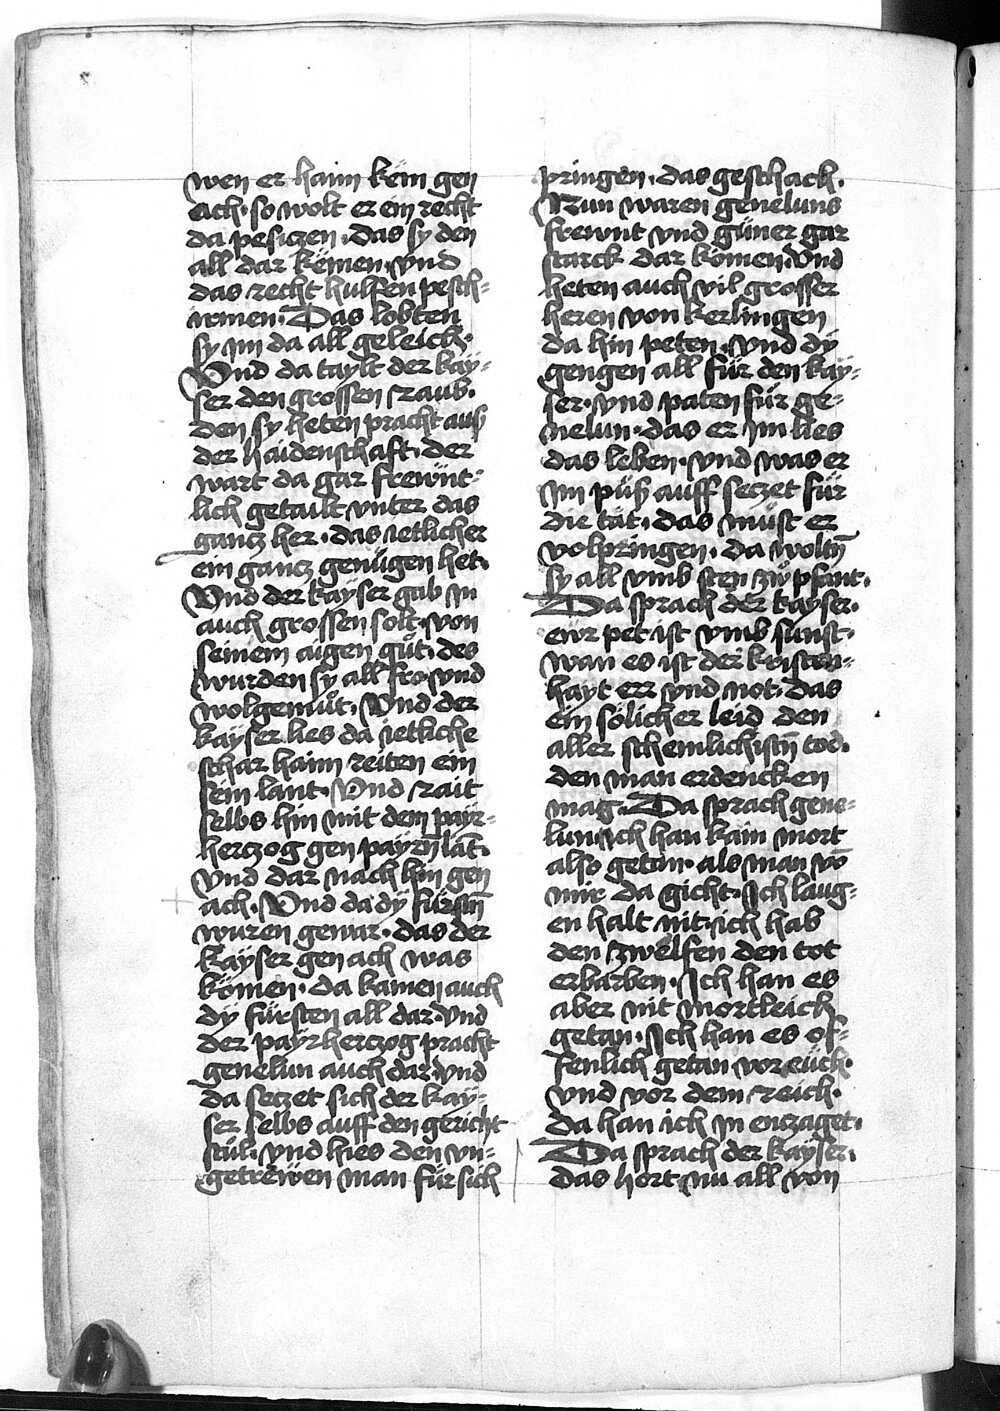 wen er haim kem gen
ach · so wolt er ein recht
da pesiczen · das sy den
all dar kemen · vnd
das recht hulfen pesch-
irmen · Das lobten
sy im da all geleich ·
Vnd da taylt der kay-
ser den grossen raub ·
den sy heten pracht auß
der haidenschaft · der
wart da gar frewnt-
lich getailt vnter das
gancz her · das ietlicher
ein gancz genügen het ·
Vnd der kayser gab in
auch grossen solt · von
seinem aigen güt · des
wurden sy all fro · vnd
wolgemüt · Vnd der
kayser lies da ietliche
schar haim reiten ein
sein lant · Vnd rait
selbs hin mit dem payr-
herczog gen payrn lāt ·
vnd dar nach hin gen
ach · Vnd da dy fürstn̄
wuren gewar · das der
kayser gen ach was
kömen · da kamen auch
dÿ fürsten all dar · vnd
der payrherczog pracht
genelun auch dar · vnd
da seczet sich der kay-
ser selbs auff den gericht
stül · vnd hies den vn-
getrewen man für sich
pringen · das geschach ·
Nun waren geneluns
frewnt vnd güner gar
starck dar kömen · vnd
heten auch vil grosser
heren von kerlingen
da hin peten · vnd dÿ
gengen all für den kay-
ser · vnd paten für ge-
nelun · das er im lies
das leben · vnd was er
im püß auff seczet für
die tät · das müst er
volpringen · da woltn̄
sy all vmb sten zü pfant ·
Da sprach der kayser ·
ewr pet ist vmb sunst ·
wan es ist der kristen-
hayt err vnd not · das
ein sölicher leid den
aller schemlichistn̄ tod ·
den man erdencken
mag · Da sprach gene-
lun · ich han kain mort
also getan · als man vō
mir da gicht · Ich laug-
en halt nit · ich hab
den zwelfen den tot
erbarben · Ich han es
aber nit mortleich
getan · Ich han es of-
fenlich getan vor eüch ·
vnd vor dem reich ·
da han ich in enzaget ·
Da sprach der kayser ·
das hort nu all von